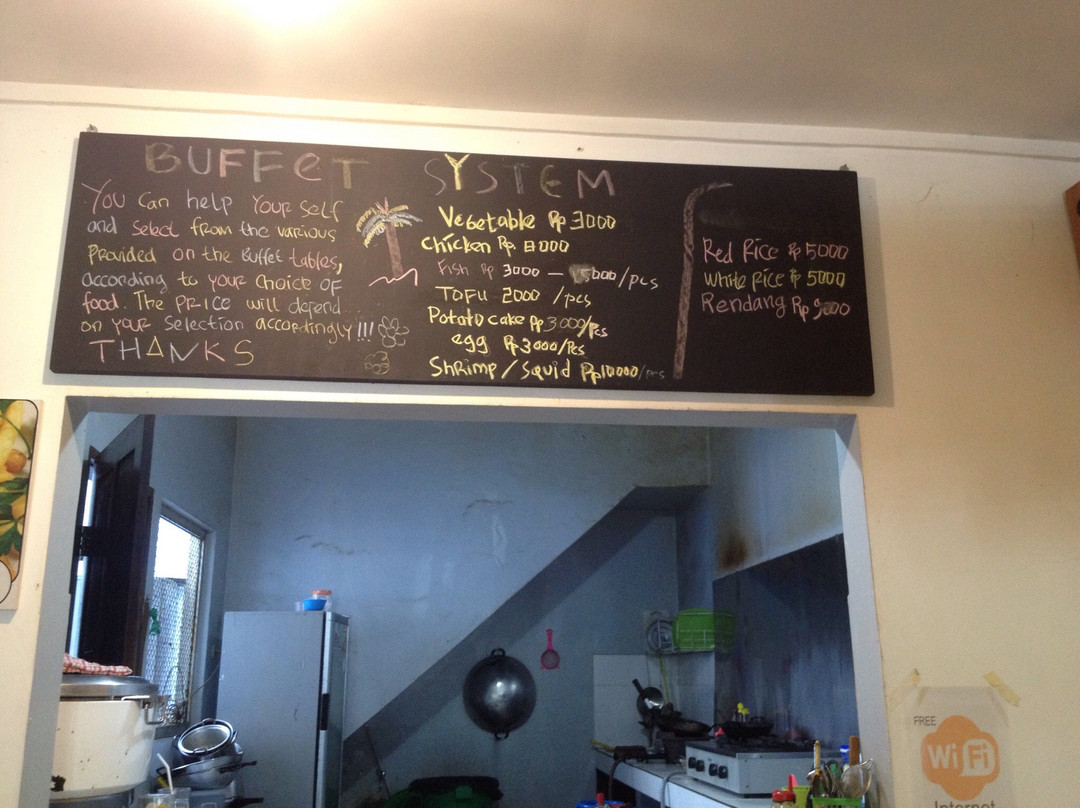 BUFFeT SYSTEM
You can help Your Self
and select from the various
Provided on the Buffet tables,
according to your choice OF
food. The PRICE will depend
on your Selection accordingly!!!
THANKS
Vegetable Rp 3000
Chicken Rp 8000
Fish Rp 3000 - 15000/pcs
TOFU 2000 /pcs
Potato cake Rp 3000/Pcs
egg Rp 3000/Pcs
Shrimp / Squid Rp 10000/pcs
Red Rice Rp 5000
white rice Rp 5000
Rendang Rp
FREE
WiFi
Internet